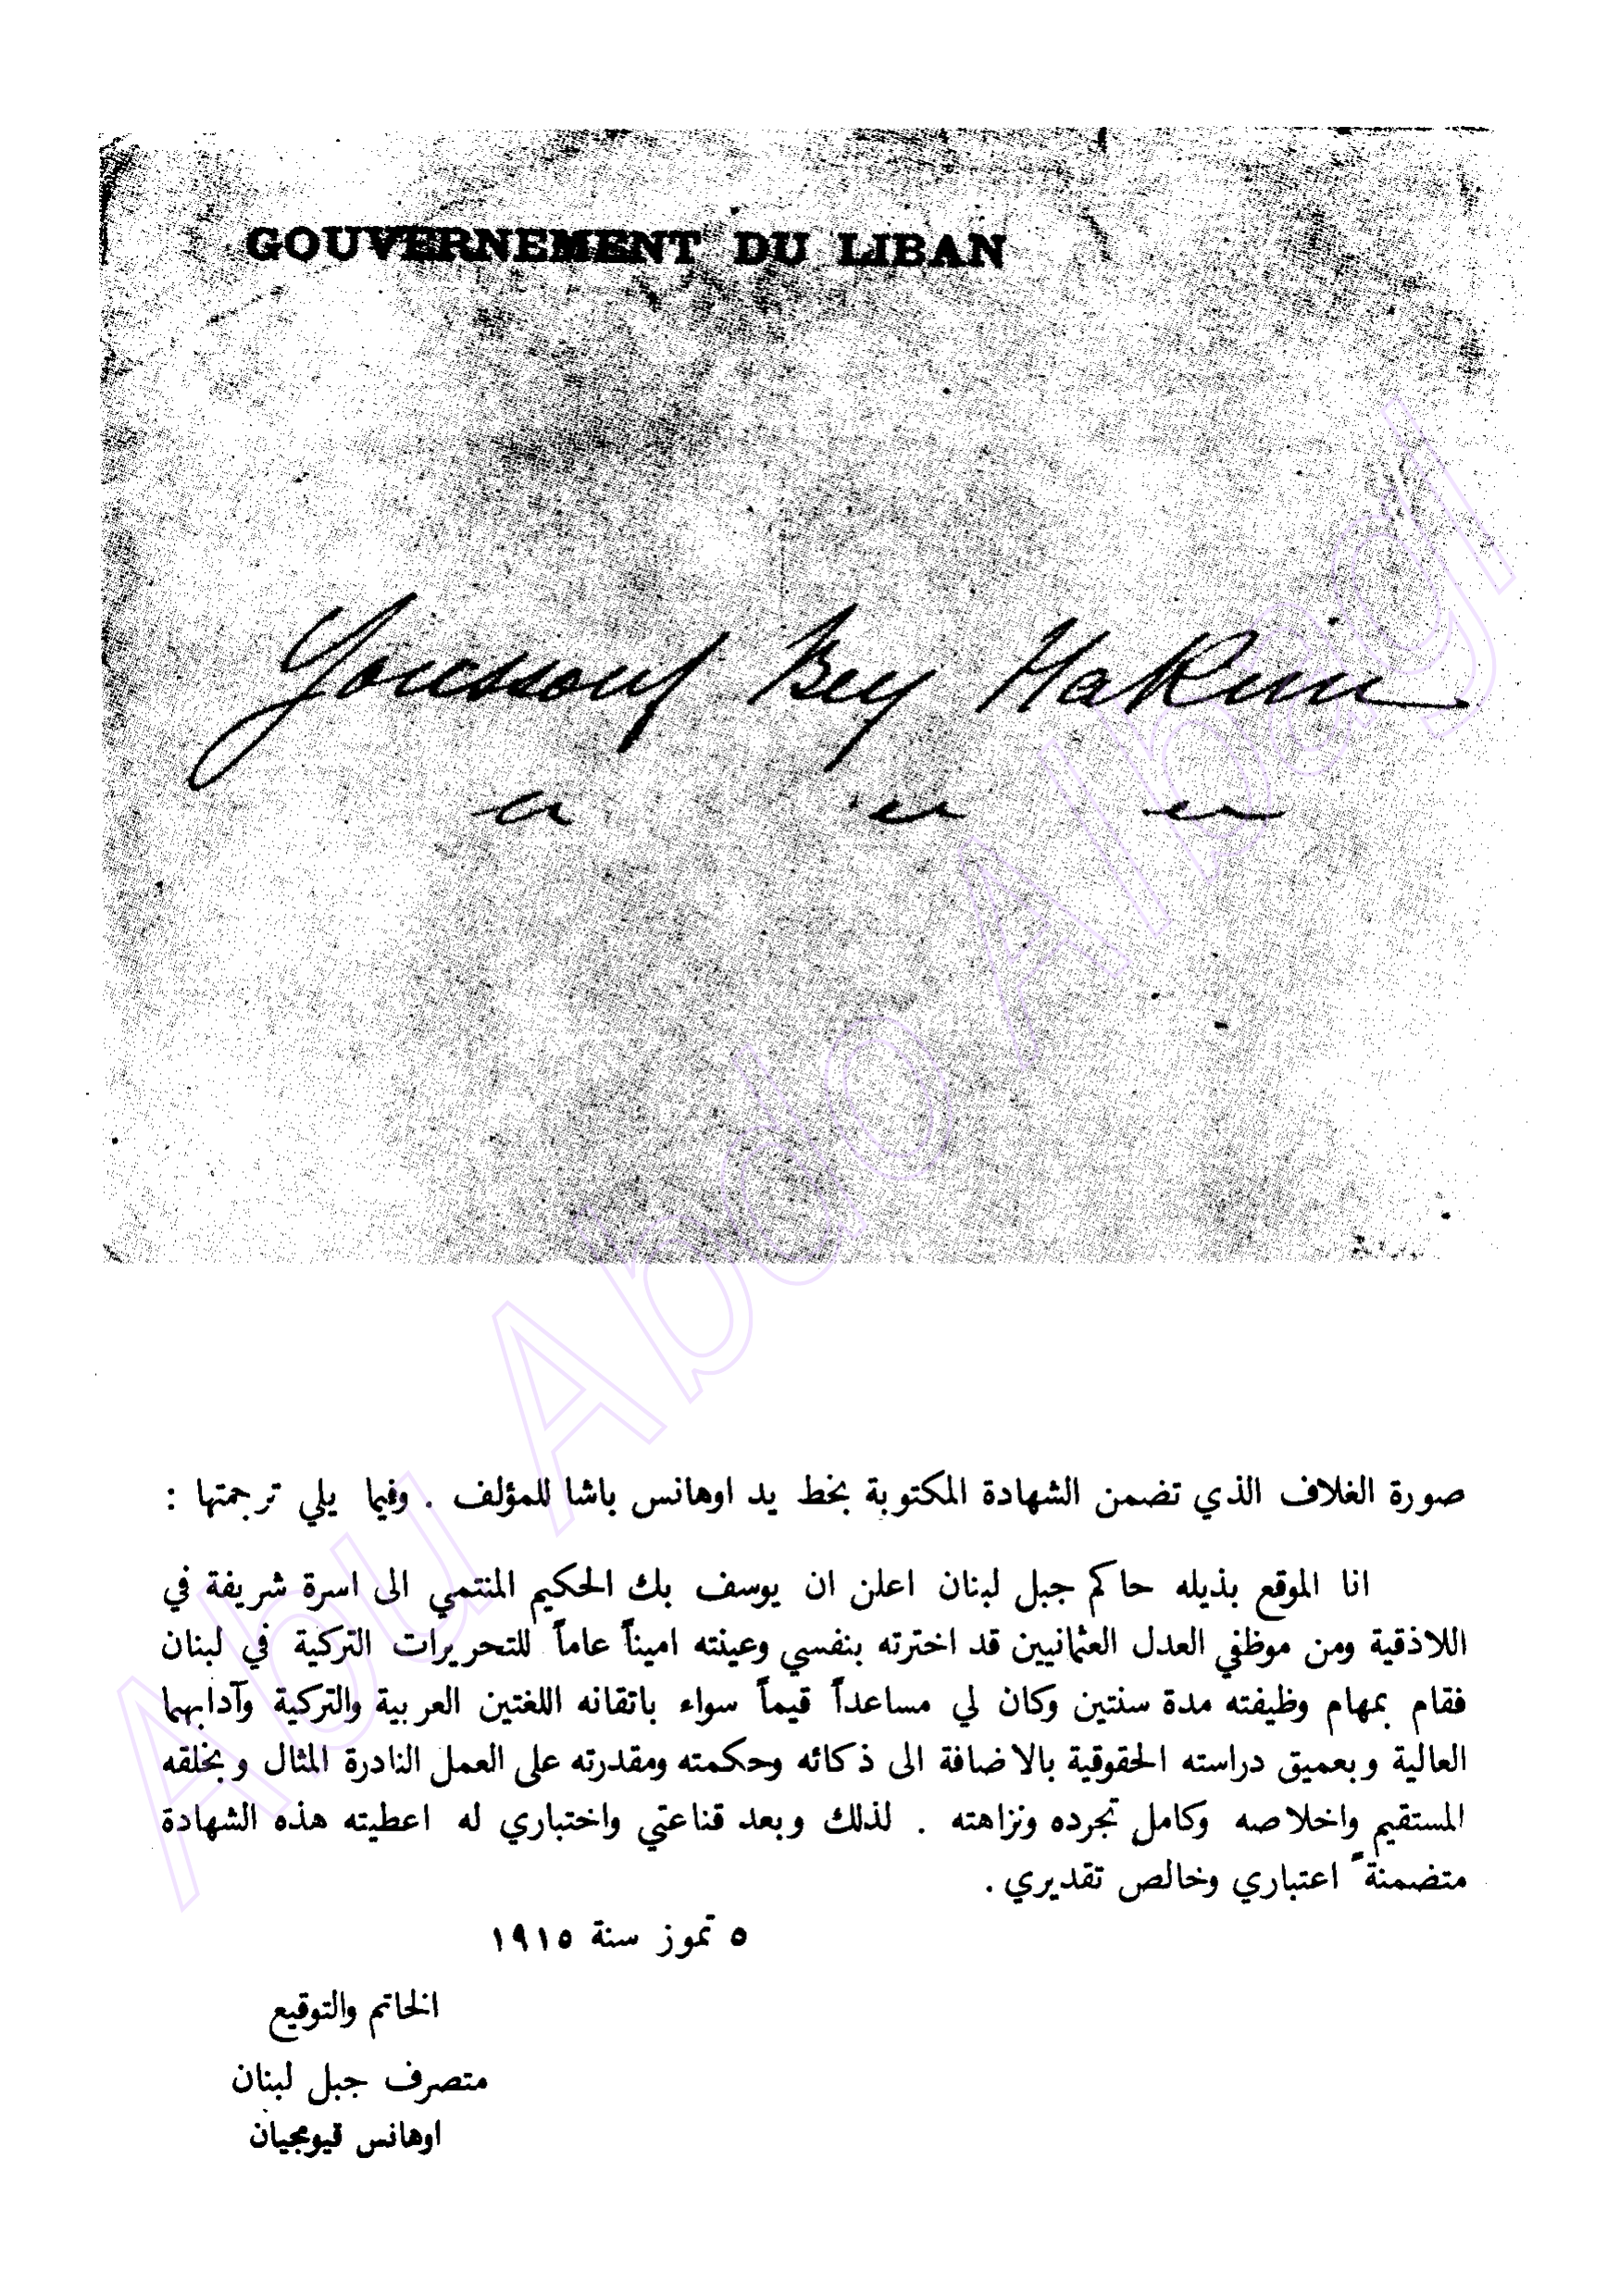 GOUVERNEMENT DU LIBAN
Youssouf Bey Hakim
صورة الغلاف الذي تضمن الشهادة المكتوبة بخط يد اوهانس باشا للمؤلف . وفيما يلي ترجمتها :
انا الموقع بذيله حاكم جبل لبنان اعلن ان يوسف بك الحكيم المنتمي الى اسرة شريفة في
اللاذقية ومن موظفي العدل العثمانيين قد اخترته بنفسي وعينته اميناً عاماً للتحريرات التركية في لبنان
فقام بمهام وظيفته مدة سنتين وكان لي مساعداً قيماً سواء باتقانه اللغتين العربية والتركية وآدابهما
العالية وبعميق دراسته الحقوقية بالاضافة الى ذكائه وحكمته ومقدرته على العمل النادرة المثال وبخلقه
المستقيم واخلاصه وكامل تجرده ونزاهته . لذلك وبعد قناعتي واختباري له اعطيته هذه الشهادة
متضمنةً اعتباري وخالص تقديري .
٥ تموز سنة ١٩١٥
الخاتم والتوقيع
متصرف جبل لبنان
اوهانس قيومجيان
Abu Abdo Albagl